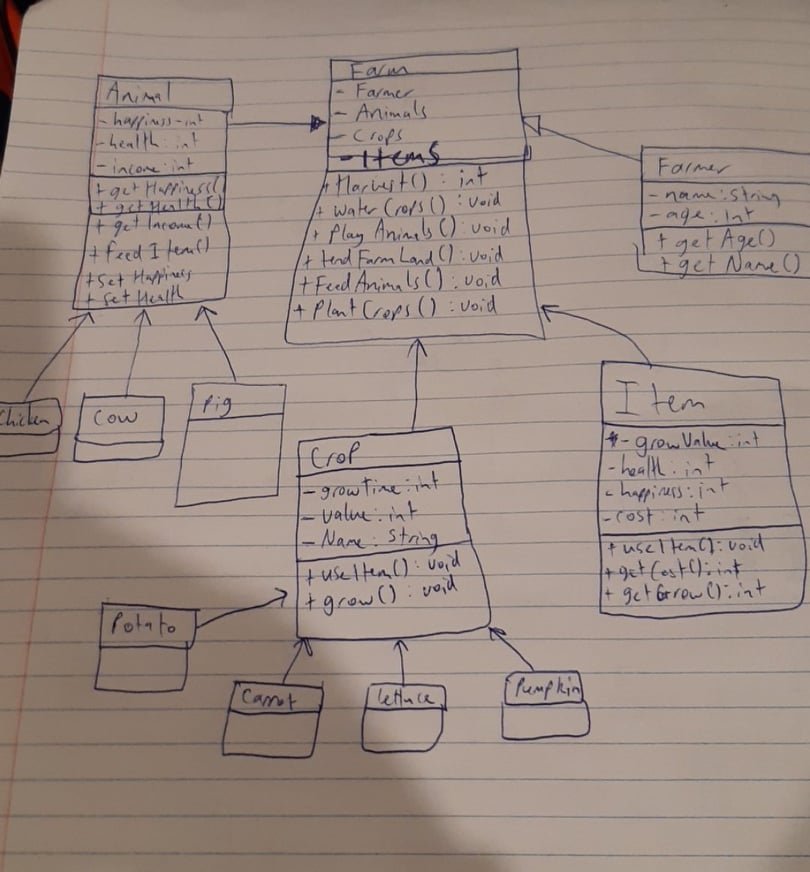 Animal
- happiness - int
- health : int
- income : int
+ get Happiness()
+ get Health()
+ get Income()
+ feed Item()
+ Set Happiness
+ Set Health
Farm
- Farmer
- Animals
- Crops
- Items
+ Harvest() : int
+ Water Crops() : void
+ Play Animals() : void
+ tend Farm Land() : void
+ Feed Animals() : void
+ Plant Crops() : void
Farmer
- name : String
- age : Int
+ get Age()
+ get Name()
Chicken
Cow
Pig
Crop
- grow Time : int
- Value : int
- Name : String
+ use Item() : void
+ grow() : void
Item
- grow Value : int
- health : int
- happiness : int
- cost : int
+ use Item() : void
+ get Cost() : int
+ get Grow() : int
Potato
Carrot
Lettuce
Pumpkin